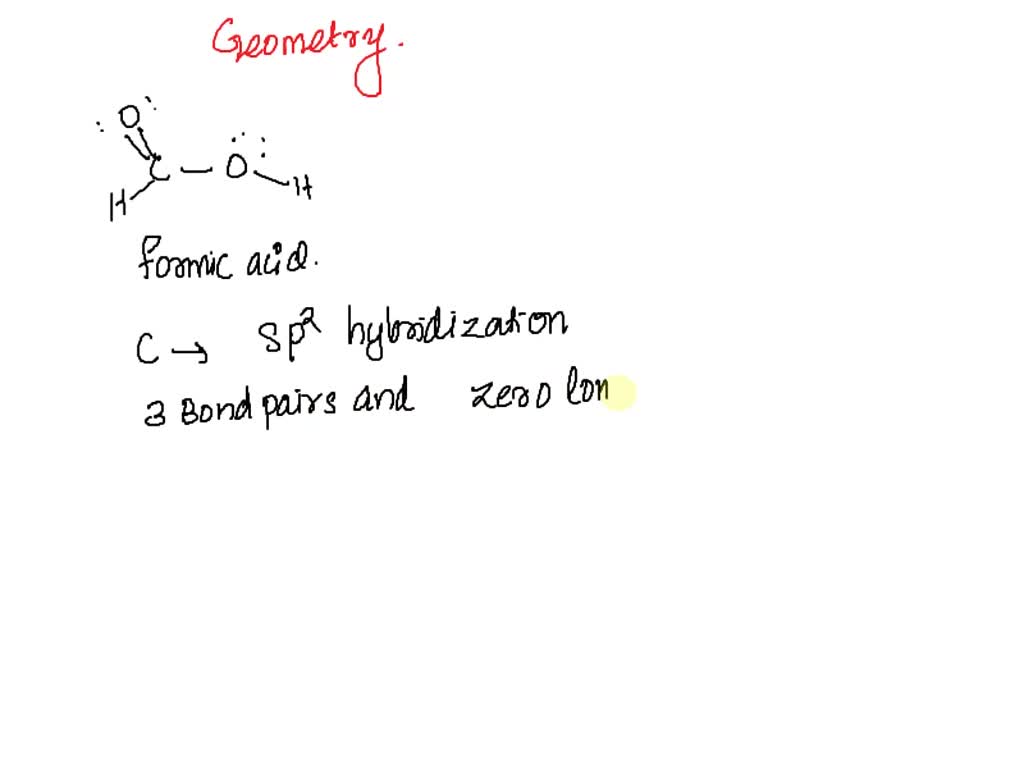 Geometry.
O
C - O
H
H
formic acid.
C → sp² hybridization
3 Bond pairs and zero lon